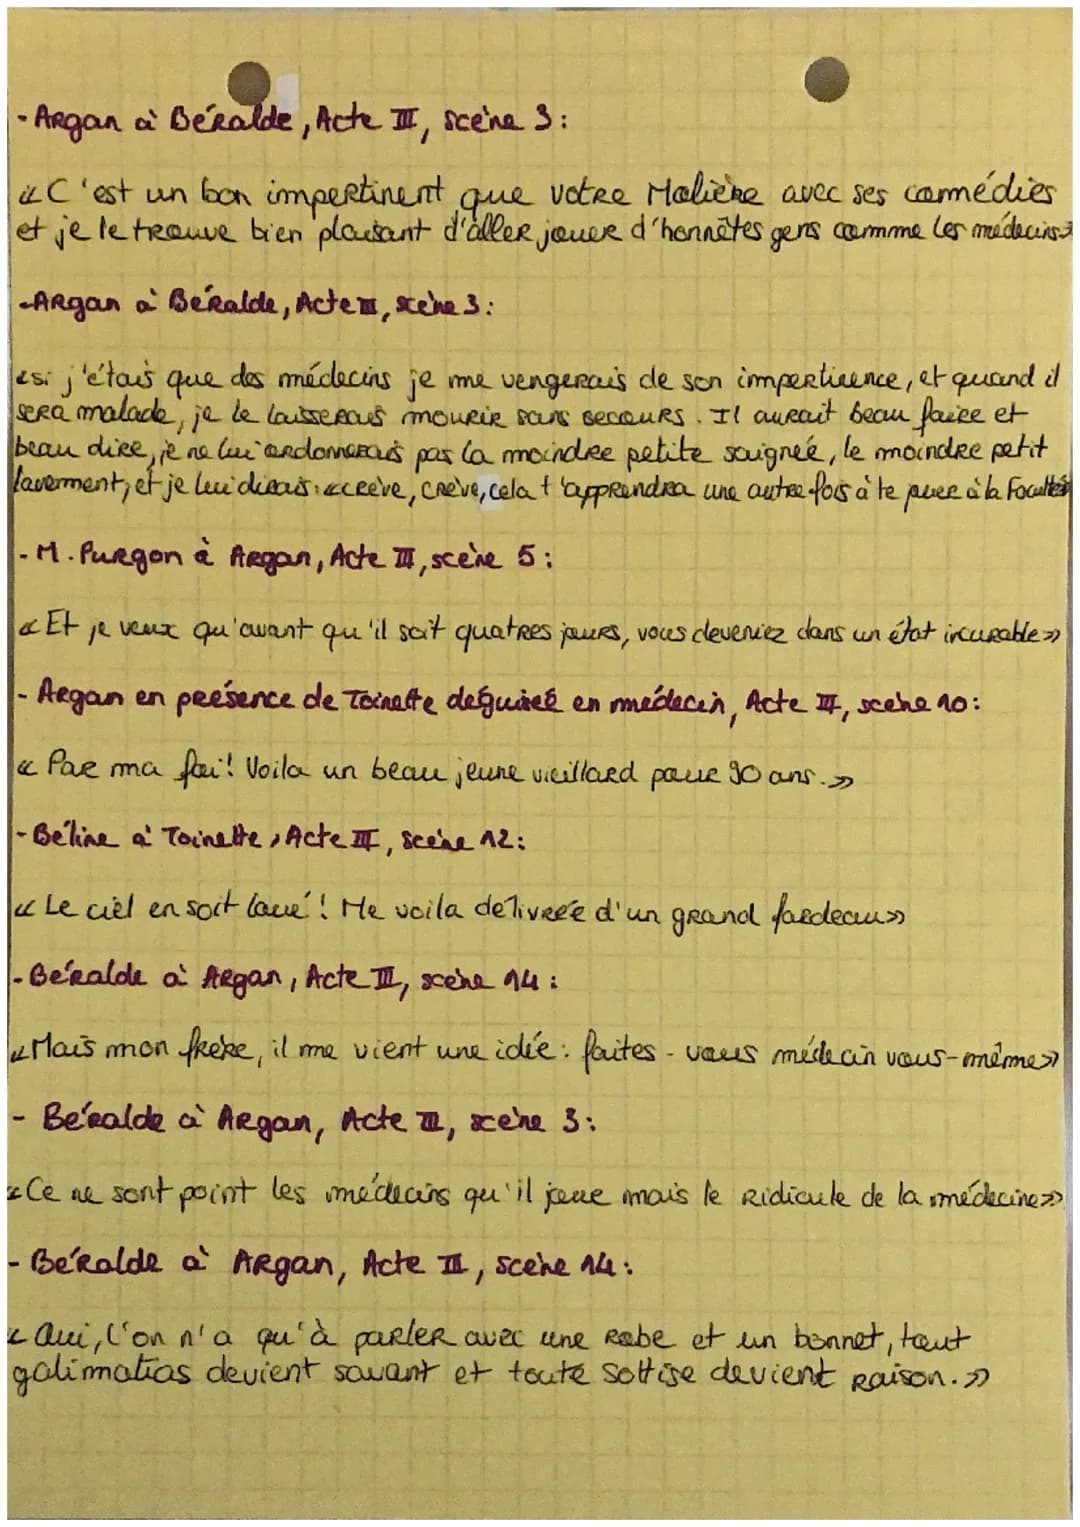 - Argan à Béralde, Acte III, scène 3:
« C'est un bon impertinent que votre Molière avec ses commédies
et je le trouve bien plaisant d'aller jouer d'honnêtes gens comme les médecins»
- Argan à Béralde, Acte III, scène 3:
«si j'étais que des médecins je me vengerais de son impertinence, et quand il
sera malade, je le laisserais mourir sans secours. Il aurait beau faire et
beau dire, je ne lui ordonnerais pas la moindre petite saignée, le moindre petit
lavement, et je lui dirais: «crève, crève, cela t'apprendra une autre fois à te jouer à la Faculté»
- M. Purgon à Argan, Acte III, scène 5:
« Et je veux qu'avant qu'il soit quatres jours, vous deveniez dans un état incurable»
- Argan en présence de Toinette déguiseé en médecin, Acte III, scène 10:
« Par ma foi! Voila un beau jeune vieillard pour 90 ans.»
- Béline à Toinette, Acte III, scène 12:
« Le ciel en soit loué! Me voila délivrée d'un grand fardeau»
- Béralde à Argan, Acte III, scène 14:
«Mais mon frère, il me vient une idée: faites-vous médecin vous-même»
- Béralde à Argan, Acte III, scène 3:
«Ce ne sont point les médecins qu'il joue mais le ridicule de la médecine»
- Béralde à Argan, Acte III, scène 14:
« Oui, l'on n'a qu'à parler avec une robe et un bonnet, tout
galimatias devient savant et toute sottise devient raison.»